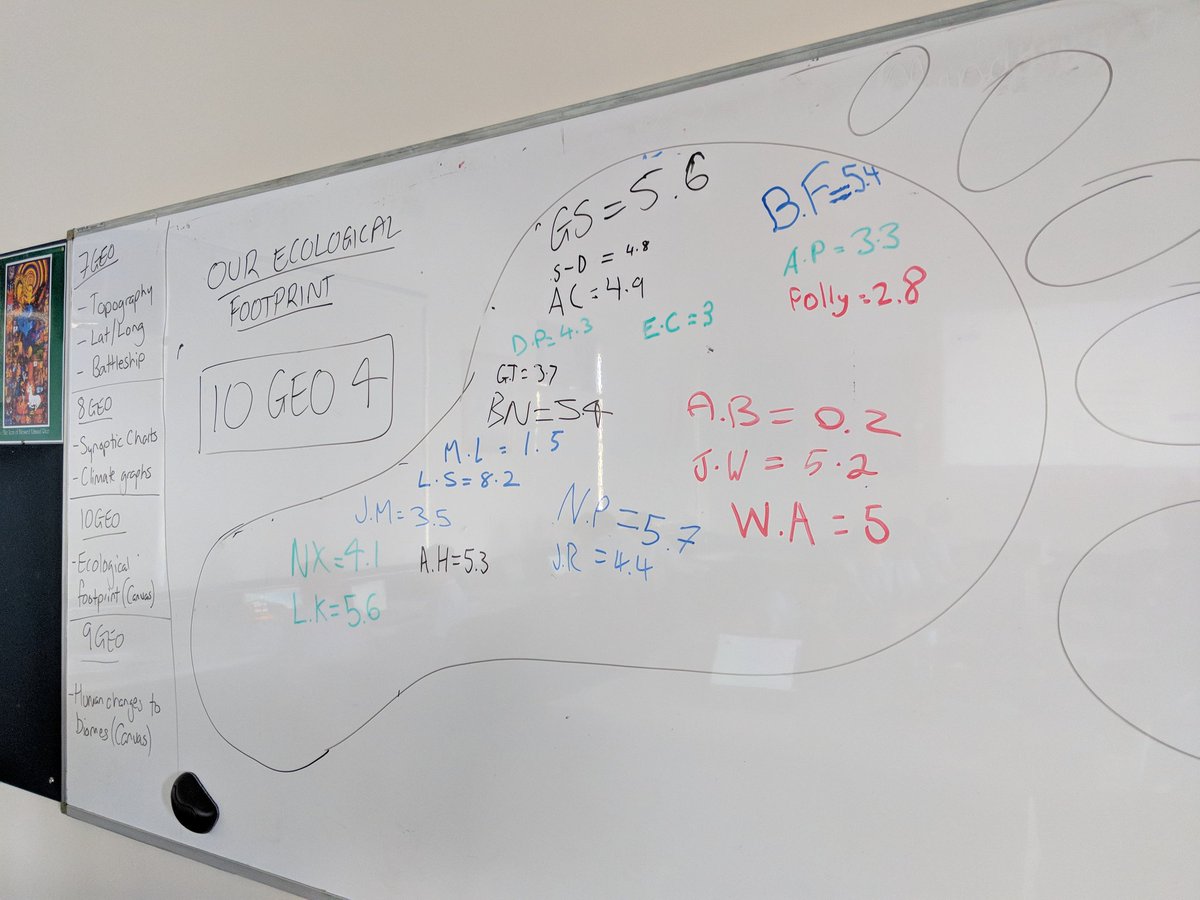 7GEO
- Topography
- Lat/Long
- Battleship
8GEO
- Synoptic Charts
- Climate graphs
10GEO
- Ecological
footprint (Canvas)
9GEO
- Human changes to
biomes (Canvas)
OUR ECOLOGICAL
FOOTPRINT
10 GEO 4
GS = 5.6
S-D = 4.8
AC = 4.9
D.P = 4.3
E.C = 3
G.T = 3.7
BN = 5.4
M.L = 1.5
L.S = 8.2
J.M = 3.5
NX = 4.1
A.H = 5.3
L.K = 5.6
N.P = 5.7
J.R = 4.4
B.F = 5.4
A.P = 3.3
Polly = 2.8
A.B = 0.2
J.W = 5.2
W.A = 5